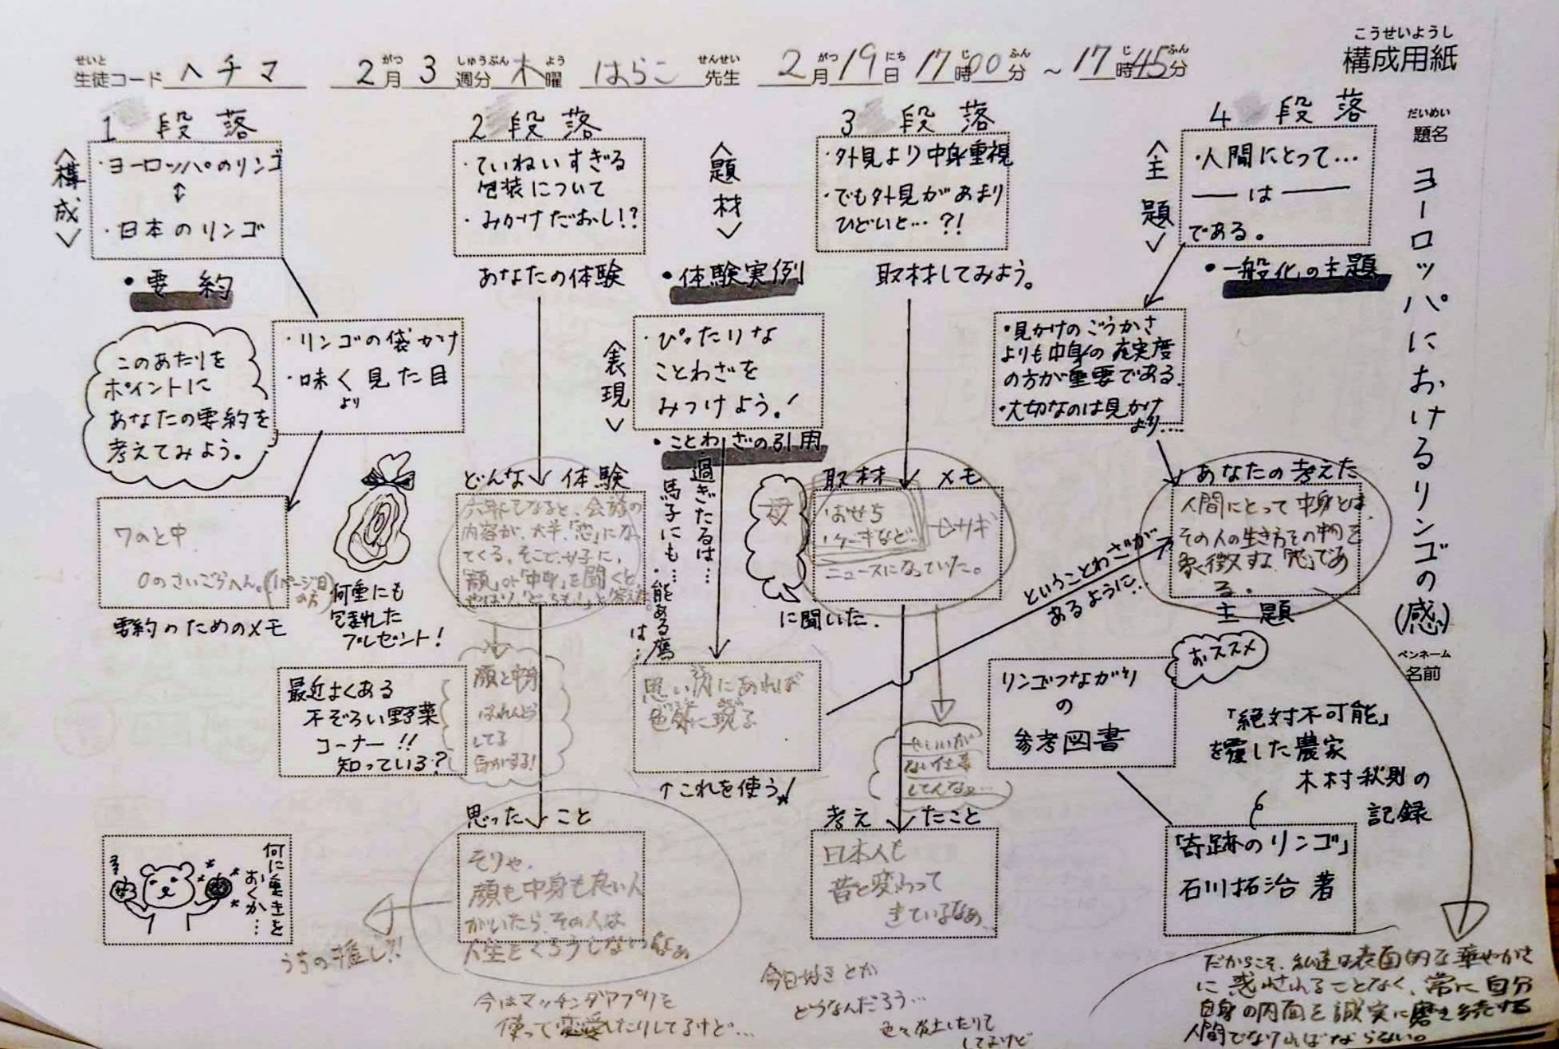 こうせいようし
構成用紙
せいと
生徒コード ヘチマ 2月 3週分 木曜 はらこ先生 2月19日 17時00分 ～ 17時45分
だいめい
題名
ヨーロッパにおけるリンゴの(感)
ペンネーム
名前
1 段落
<構成>
・ヨーロッパのリンゴ
↕
・日本のリンゴ
・要約
・リンゴの袋かけ
・味く見た目
より
このあたりを
ポイントに
あなたの要約を
考えてみよう。
ワのと中
0のさいごらへん。(1ページ目の方)
要約のためのメモ
何重にも
包まれた
プレゼント!
最近よくある
不ぞろい野菜
コーナー!!
知っている?
何に重きを
おくか…
2 段落
・ていねいすぎる
包装について
・みかけだおし!?
あなたの体験
<題材>
・体験実例
<表現>
ぴったりな
ことわざを
みつけよう!
・ことわざの引用
過ぎたるは…
・馬子にも…
・能ある鷹は…
どんな体験
内容が、大半、「恋」になっ
てくる。そこで、女子に、
「顔」か「中身」を聞くと、
顔と中身
してる
気がする!
思い内にあれば
色外に現る
↑これを使う
思ったこと
そりゃ、
顔も中身も良い人
がいたら、その人は
人生とくろうしないよなぁ
うちの推し?!
今はマッチングアプリを
使って恋愛したりしてるけど…
3 段落
・外見より中身重視
・でも外見があまり
ひどいと…?!
取材してみよう。
取材メモ
おせち
ケーキなど…
ニュースになっていた。
母
に聞いた.
してんなぁ…
考えたこと
日本人も
昔と変わって
きているなぁ…
今日好きとか
どうなんだろう…
4 段落
<主題>
・人間にとって…
── は ──
である。
・一般化の主題
・見かけのごうかさ
よりも中身の充実度
の方が重要である.
・大切なのは見かけ
より….
あなたの考えた
人間にとって中身とは、
その人の生き方その物を
象徴する、「恋」であ
る。
主題
ということわざが
あるように…
おススメ
リンゴつながり
の
参考図書
「絶対不可能」
を覆した農家
木村秋則の
記録
「奇跡のリンゴ」
石川拓治 著
だからこそ、私達は表面的な華やかさ
に惑わされることなく、常に自分
自身の内面を誠実に磨き続ける
人間でなければならない。